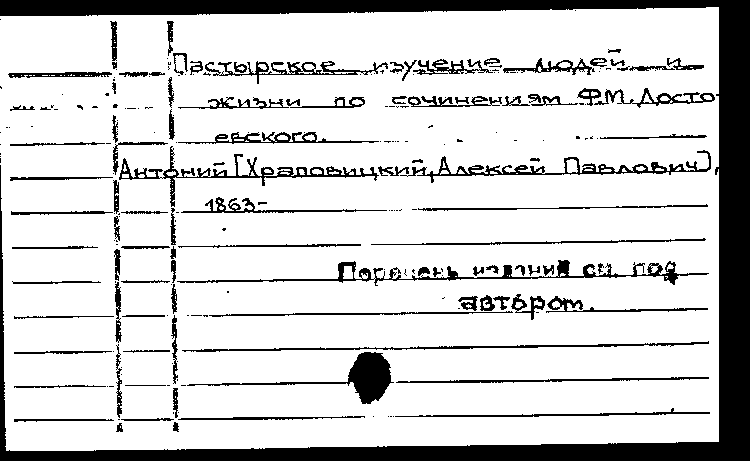 Пастырское изучение людей и
жизни по сочинениям Ф.М. Досто-
евского.
Антоний [Храповицкий, Алексей Павлович],
1863-
Перечень изданий см. под
автором.